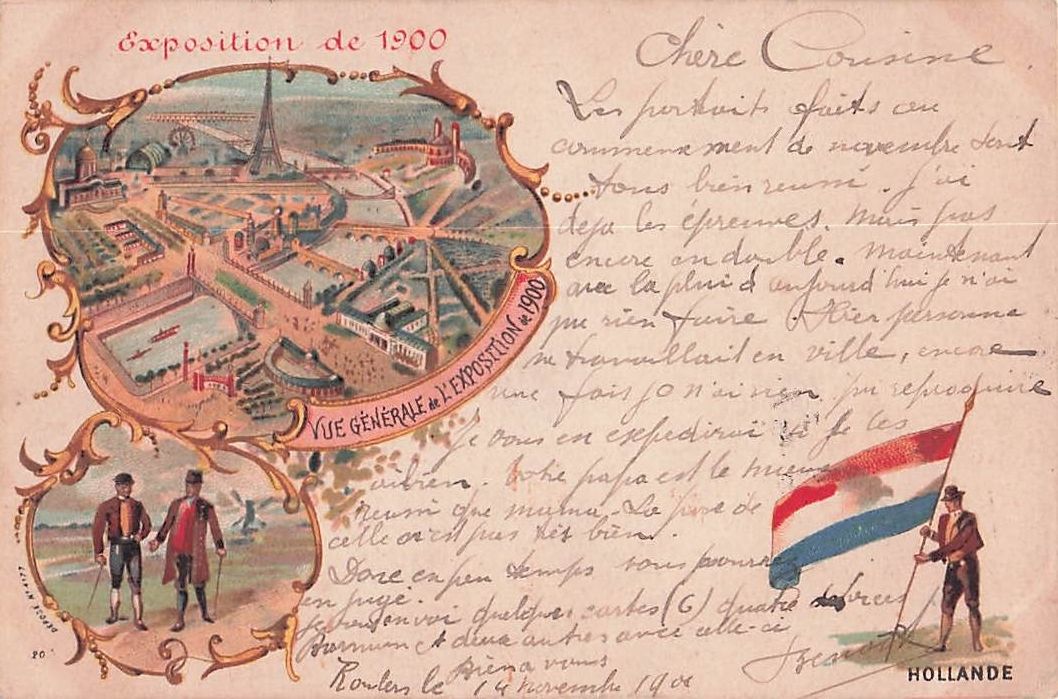 Exposition de 1900
VUE GÉNÉRALE de L'EXPOSITION de 1900
Chère Cousine
Les portraits faits au
commencement de novembre sont
tous bien reussi. J'ai
deja les épreuves. Mais pas
encore en double. Maintenant
avec la pluie d'aujourd'hui je n'ai
pu rien faire. Hier personne
ne travaillait en ville, encore
une fois je n'ai rien pu reproduire
Je vous en expedirai si je les
ai bien. Votre papa est le mieux
reussi que mama. La pose de
celle n'est pas très bien.
Donc en peu temps vous pourrez
en juger.
Je vous envoi quelques cartes (6) quatre de vues
Barnum et deux autres avec celle-ci
Bien a vous
Roulers le 14 novembre 19
HOLLANDE
DÉPOSÉ
20